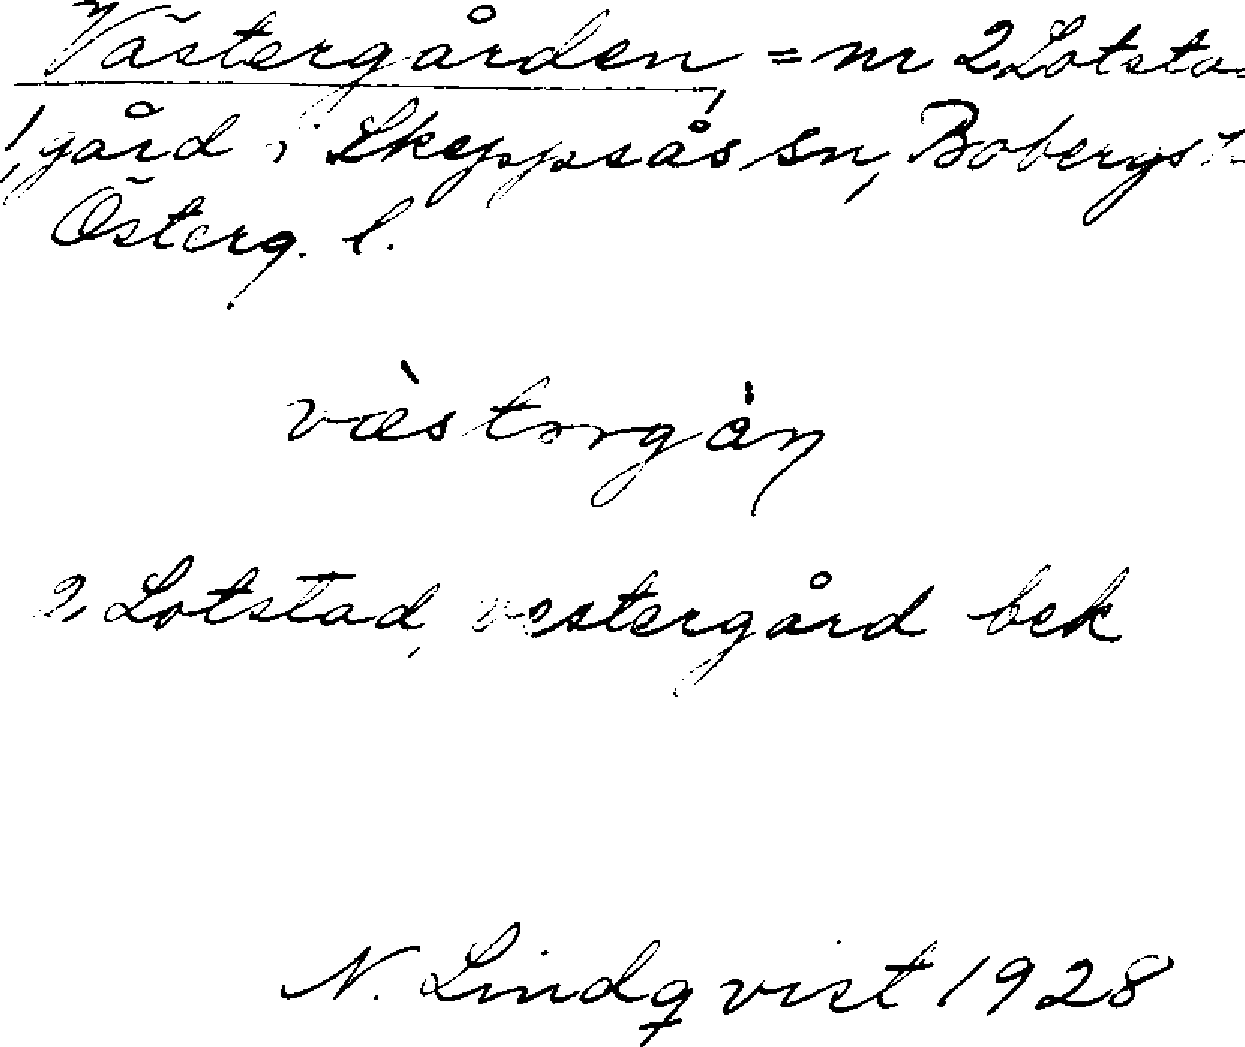 Västergården, = nr 2 Lotsta
gård i Skeppsås sn, Bobergs
Österg. l.
væ̀storgȧn
2, Lotstad, vestergård bek
N. Lindqvist 1928